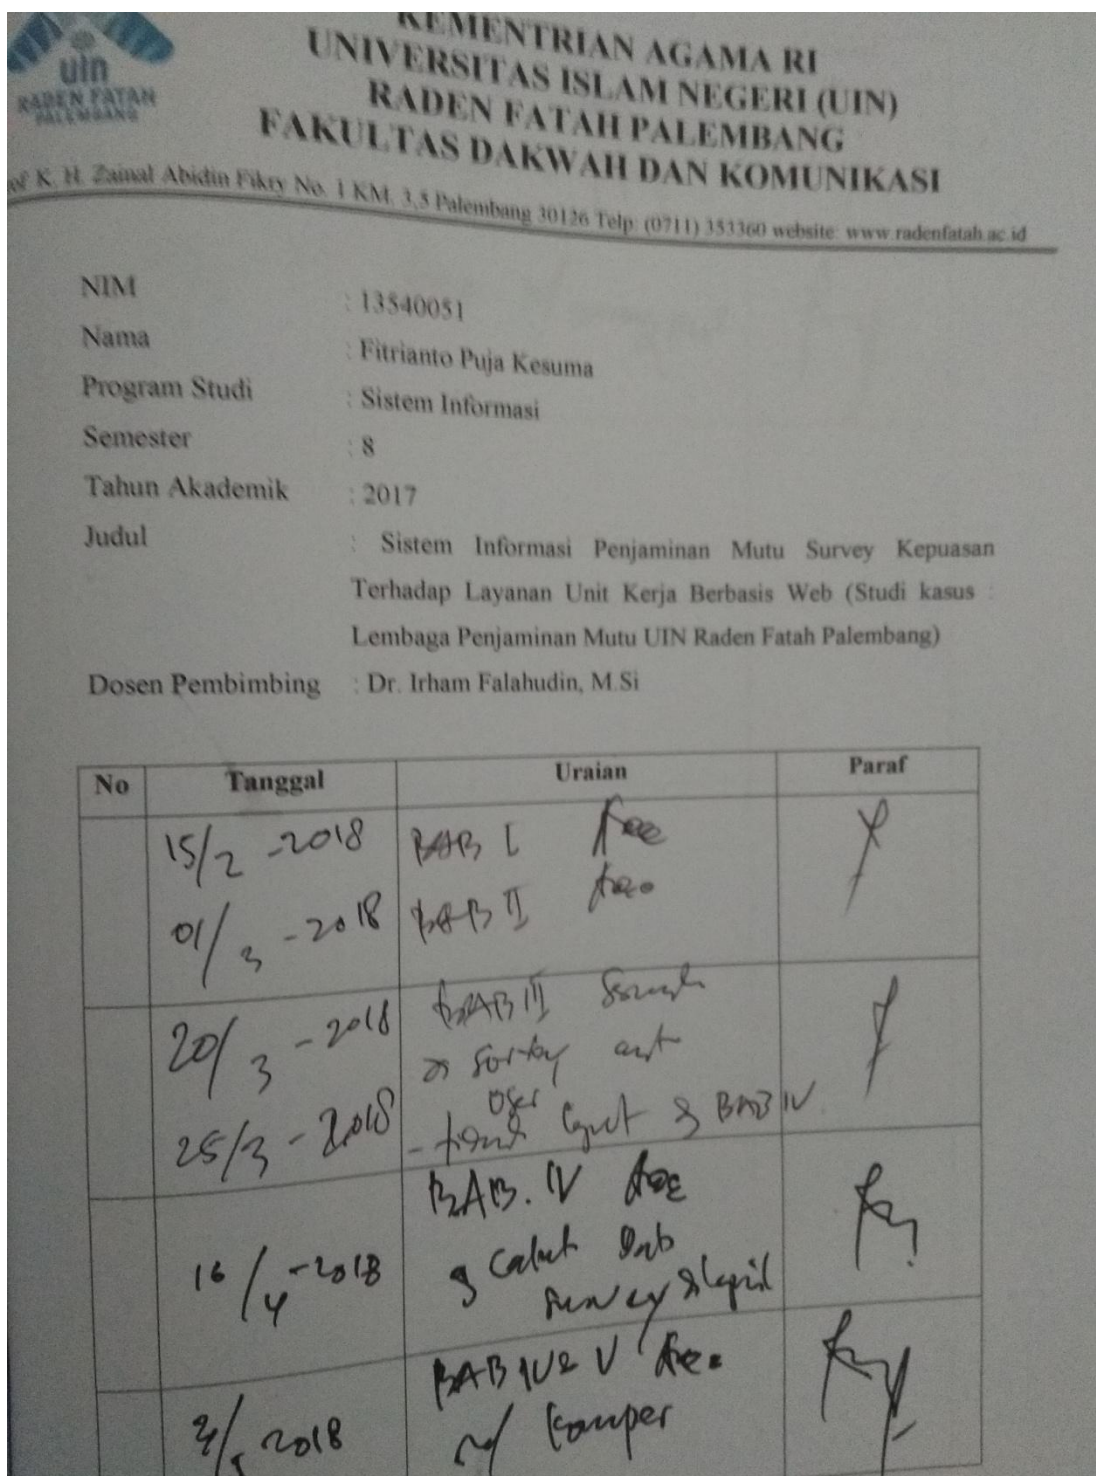 uin
RADEN FATAH
PALEMBANG
KEMENTRIAN AGAMA RI
UNIVERSITAS ISLAM NEGERI (UIN)
RADEN FATAH PALEMBANG
FAKULTAS DAKWAH DAN KOMUNIKASI
of K. H. Zainal Abidin Fikry No. 1 KM. 3,5 Palembang 30126 Telp: (0711) 353360 website: www.radenfatah.ac.id
NIM : 13540051
Nama : Fitrianto Puja Kesuma
Program Studi : Sistem Informasi
Semester : 8
Tahun Akademik : 2017
Judul : Sistem Informasi Penjaminan Mutu Survey Kepuasan
Terhadap Layanan Unit Kerja Berbasis Web (Studi kasus :
Lembaga Penjaminan Mutu UIN Raden Fatah Palembang)
Dosen Pembimbing : Dr. Irham Falahudin, M.Si
No Tanggal Uraian Paraf
15/2 -2018 BAB I
01/3 -2018 BAB II
20/3 -2018 BAB III
25/3 -2018 BAB IV
BAB. IV
16/4 -2018
survey
BAB IV & V
2018